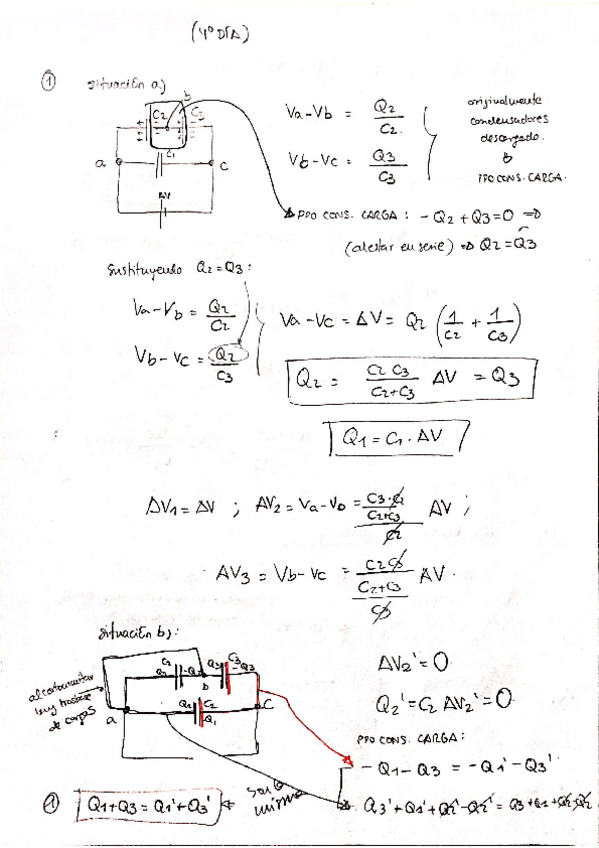 (4º DÍA)
① Situación a)
b
C2 C3
a C1 C
ΔV
Va-Vb = Q2/C2
Vb-Vc = Q3/C3
originalmente
condensadores
descargado.
PPO CONS. CARGA.
PPO CONS. CARGA : -Q2 + Q3 = 0 ⇒
(al estar en serie) ⇒ Q2 = Q3
Sustituyendo Q2 = Q3 :
Va-Vb = Q2/C2
Vb-Vc = Q2/C3
Va-Vc = ΔV = Q2 (1/C2 + 1/C3)
Q2 = C2 C3/C2+C3 ΔV = Q3
Q1 = C1 · ΔV
ΔV1 = ΔV ; ΔV2 = Va-Vb = C3·C2/C2+C3/C2 ΔV ;
ΔV3 = Vb-Vc = C2C3/C2+C3/C3 ΔV.
Situación b) :
al cortocircuitar
hay trasvase
de cargas
C2 C3
Q2 -Q2 Q3 -Q3
b
a C
Q1
ΔV2' = 0
Q2' = C2 ΔV2' = 0
PPO CONS. CARGA :
-Q1 - Q3 = -Q1' - Q3'
① Q1 + Q3 = Q1' + Q3' ⇐ son lo mismo
Q3' + Q1' + Q2' - Q2' = Q3 + Q1 + Q2 - Q2